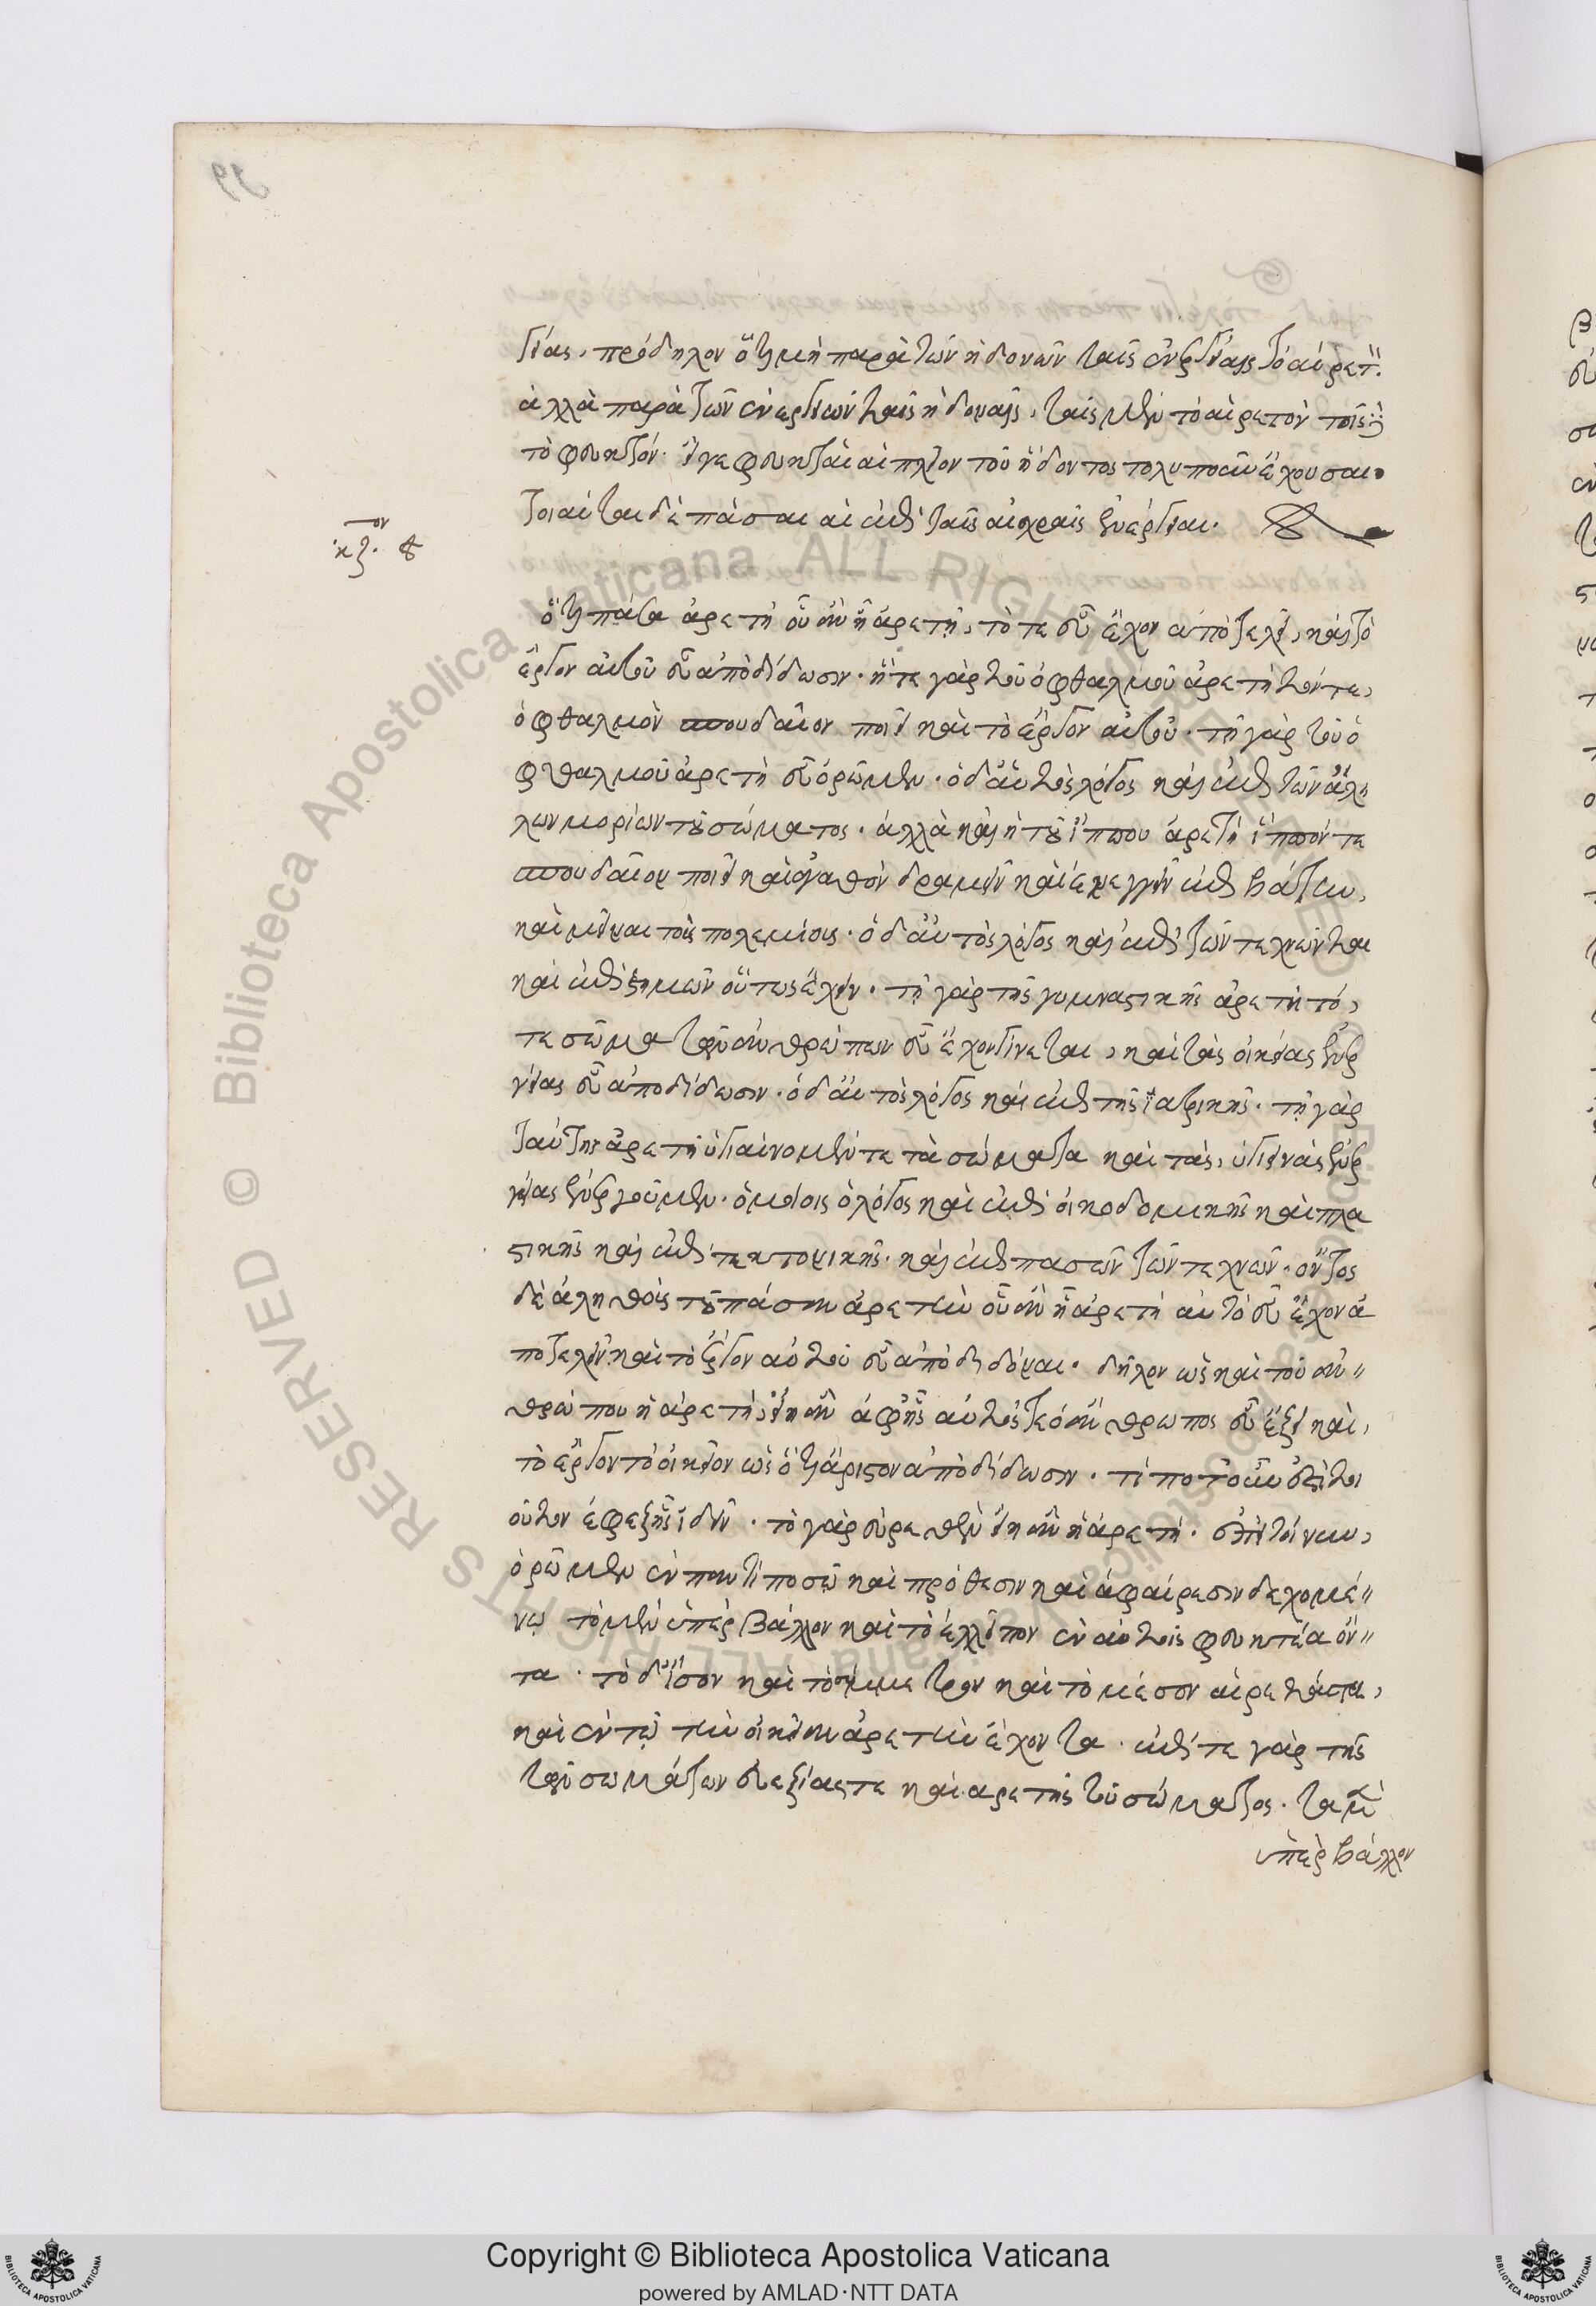 γείας, πρόδηλον ὅτι μὴ παρὰ τῶν ἡδονῶν ταῖς ἐνεργείαις τὸ αἱρετ.
ἀλλὰ παρὰ τῶν ἐνεργειῶν ταῖς ἡδοναῖς, ταῖς μὲν τὸ αἱρετὸν
τὸ φευκτόν. εἴγε φευκταὶ αἱ πλεῖον τοῦ ἥδοντος τὸ λυποῦν ἔχουσαι.
τοιαῦται δὲ πᾶσαι αἱ ἐπὶ ταῖς αἰσχραῖς ἐνέργειαι.
ὅτι πᾶσα ἀρετὴ οὗ ἂν ᾖ ἀρετή, τό τε εὖ ἔχον ἀποτελεῖ, καὶ τὸ
ἔργον αὐτοῦ εὖ ἀποδίδωσιν. ἥ τε γὰρ τοῦ ὀφθαλμοῦ ἀρετὴ τόν τε
ὀφθαλμὸν σπουδαῖον ποιεῖ καὶ τὸ ἔργον αὐτοῦ. τῇ γὰρ τοῦ ὀ
φθαλμοῦ ἀρετῇ εὖ ὁρῶμεν. ὁ δ' αὐτὸς λόγος καὶ ἐπὶ τῶν ἄλ
λων μορίων τοῦ σώματος. ἀλλὰ καὶ ἡ τοῦ ἵππου ἀρετὴ ἵππον τε
σπουδαῖον ποιεῖ καὶ ἀγαθὸν δραμεῖν καὶ ἐνεγκεῖν ἐπιβάτην,
καὶ μεῖναι τοὺς πολεμίους. ὁ δ' αὐτὸς λόγος καὶ ἐπὶ τῶν τεχνῶν
καὶ ἐπιστημῶν οὕτως ἔχειν. τῇ γὰρ τῆς γυμναστικῆς ἀρετῇ τό,
τε σῶμα τῶν ἀνθρώπων εὖ ἔχον γίνεται, καὶ τὰς οἰκείας ἐνερ
γείας εὖ ἀποδίδωσιν. ὁ δ' αὐτὸς λόγος καὶ ἐπὶ τῆς ἰατρικῆς. τῇ γὰρ
ταύτης ἀρετῇ ὑγιαίνομέν τε τὰ σώματα καὶ τὰς, ὑγιεινὰς ἐνερ
γείας ἐνεργοῦμεν. ὁμοίως ὁ λόγος καὶ ἐπὶ οἰκοδομικῆς καὶ πλα
στικῆς καὶ ἐπὶ τεκτονικῆς. καὶ ἐπὶ πασῶν τῶν τεχνῶν. ὄντος
δὲ ἀληθοῦς τοῦ πᾶσαν ἀρετὴν οὗ ἂν ᾖ ἀρετὴ αὐτὸ εὖ ἔχον ἀ
ποτελεῖν καὶ τὸ ἔργον αὐτοῦ εὖ ἀποδιδόναι. δῆλον ὡς καὶ τοῦ ἀν
θρώπου ἡ ἀρετή, εἴη ἂν ἀφ' ἧς αὐτός τε ὁ ἄνθρωπος εὖ ἕξει καὶ,
τὸ ἔργον τὸ οἰκεῖον ὡς ὅτι ἄριστον ἀποδίδωσιν. τί ποτ' οὖν
ἐφεξῆς ἰδεῖν. τὸ γὰρ εὑρεθὲν εἴη ἂν ἡ ἀρετή. ἐπεὶ τοίνυν,
ὁρῶμεν ἐν παντὶ ποσῷ καὶ πρόθεσιν καὶ ἀφαίρεσιν δεχομέ
νῳ τὸ μὲν ὑπερβάλλον καὶ τὸ ἐλλεῖπον ἐν αὐτοῖς φευκτέα ὄν
τα. τὸ δ' ἴσον καὶ τὸ σύμμετρον καὶ τὸ μέσον αἱρετά τε,
καὶ ἐν τῷ τὴν οἰκείαν ἀρετὴν ἔχοντα. ἐπί τε γὰρ τῆς
τῶν σωμάτων εὐεξίας τε καὶ ἀρετῆς τοῦ σώματος. τὰ μὲν
ὑπερβάλλον